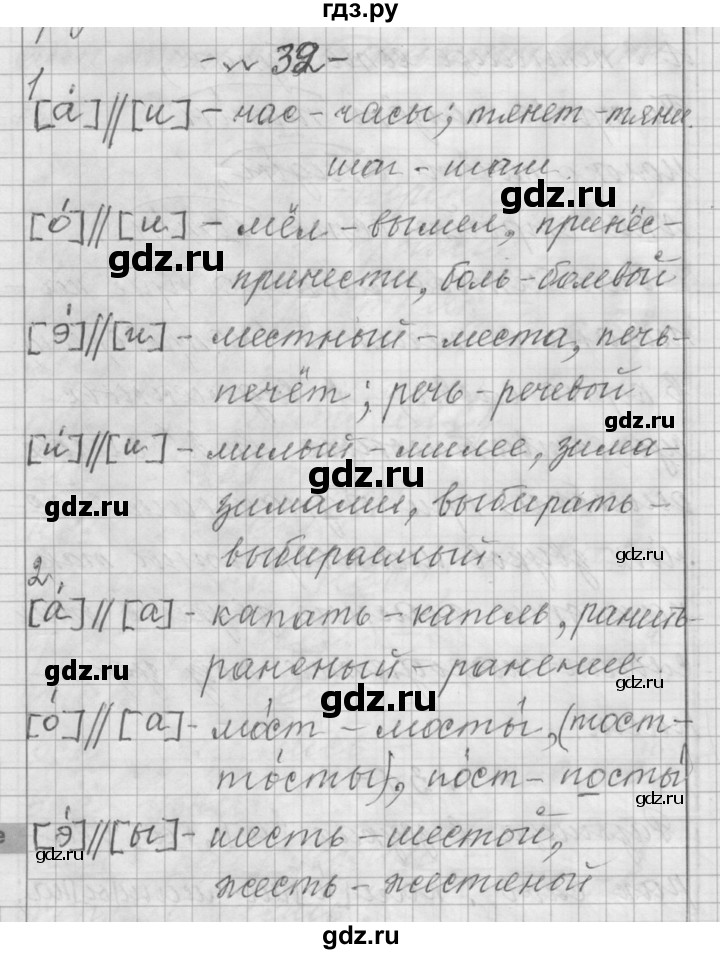 гдз.ру
- № 32 -
1
[а́]//[и] - час - часы; тянет - тяни
шаг - шаги.
gdz.ru
[о́]//[и] - мёл - вымел, принёс -
gdz.ru
принести, боль - болевой
[э́]//[и] - местный - места, печь -
печёт; речь - речевой
gdz.ru
[и́]//[и] - милый - милее, зима -
gdz.ru
gdz.ru
зимами, выбирать -
выбираемый.
gdz.ru
2.
[а́]//[а] - капать - капель, ранить -
gdz.ru
раненый - ранение.
gdz.ru
[о́]//[а] - мо́ст - мосты́, (тост -
то́сты), по́ст - посты́
gdz.ru
[э́]//[ы] - шесть - шестой,
gdz.ru
жесть - жестяной
gdz.ru